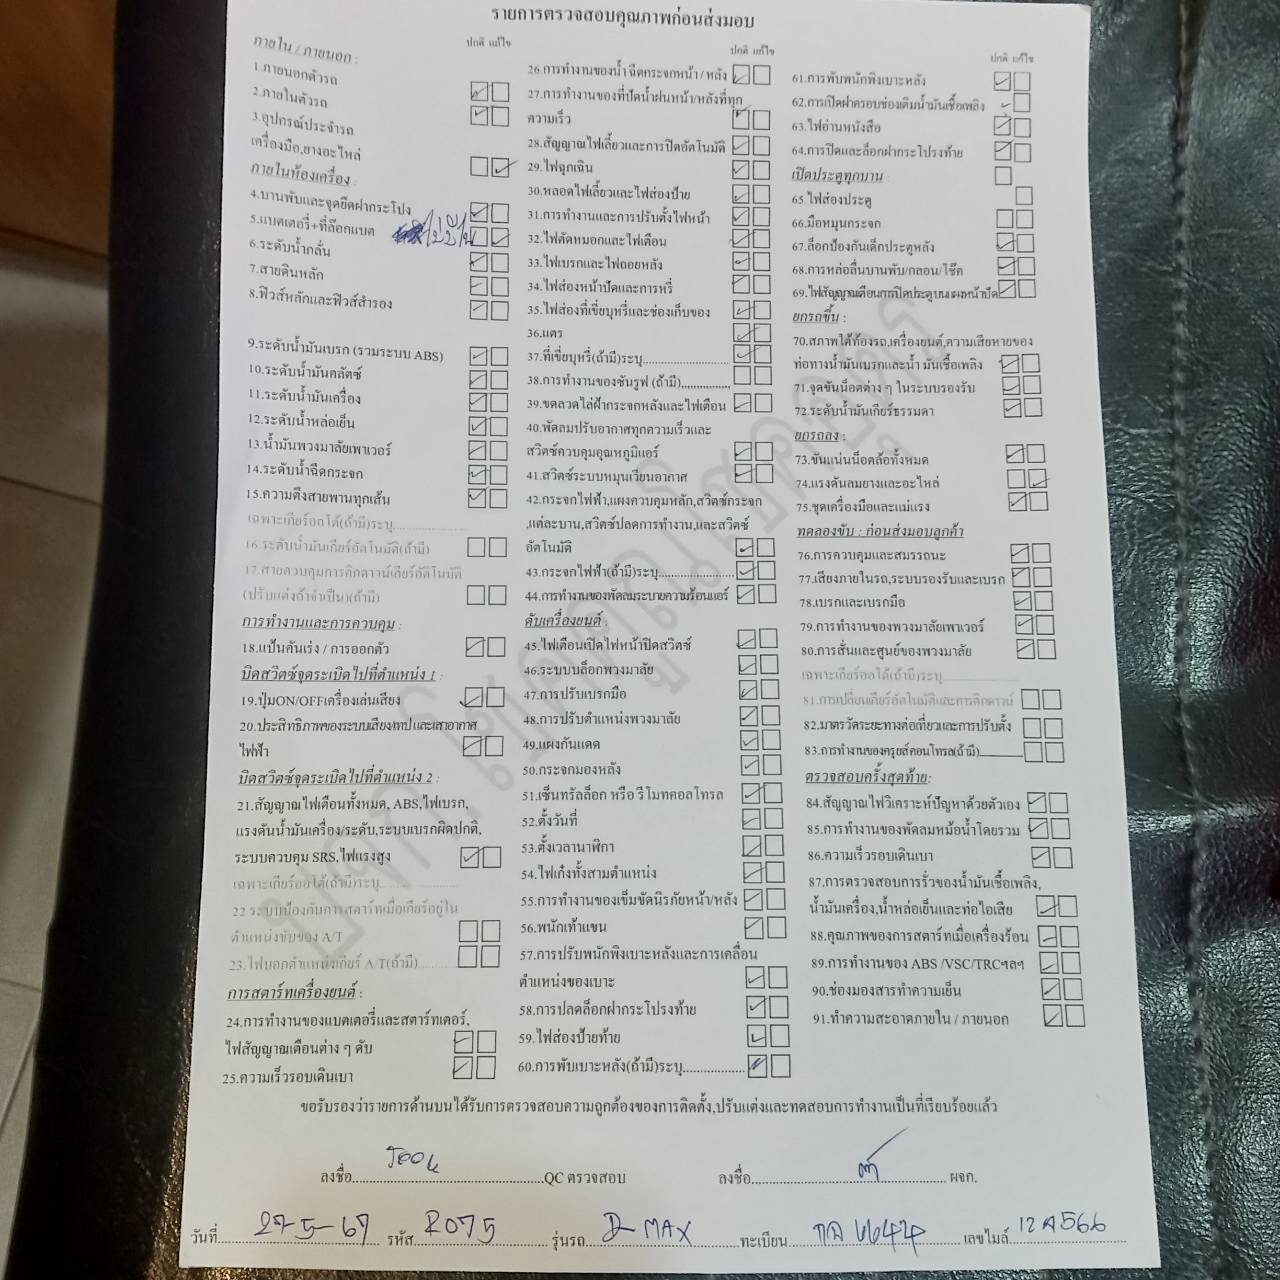 รายการตรวจสอบคุณภาพก่อนส่งมอบ
ภายใน / ภายนอก :
ปกติ แก้ไข
1.ภายนอกตัวรถ
2.ภายในตัวรถ
3.อุปกรณ์ประจำรถ
เครื่องมือ,ยางอะไหล่
ภายในห้องเครื่อง :
4.บานพับและจุดยึดฝากระโปง
5.แบตเตอรี่+ที่ล๊อกแบต
6.ระดับน้ำกลั่น
7.สายดินหลัก
8.ฟิวส์หลักและฟิวส์สำรอง
9.ระดับน้ำมันเบรก (รวมระบบ ABS)
10.ระดับน้ำมันคลัตซ์
11.ระดับน้ำมันเครื่อง
12.ระดับน้ำหล่อเย็น
13.น้ำมันพวงมาลัยเพาเวอร์
14.ระดับน้ำฉีดกระจก
15.ความตึงสายพานทุกเส้น
เฉพาะเกียร์ออโต้(ถ้ามี)ระบุ
16.ระดับน้ำมันเกียร์อัตโนมัติ(ถ้ามี)
17.สายควบคุมการคิกดาวน์เกียร์อัตโนมัติ
(ปรับแต่งถ้าจำเป็น)(ถ้ามี)
การทำงานและการควบคุม :
18.แป้นคันเร่ง / การออกตัว
บิดสวิตซ์จุดระเบิดไปที่ตำแหน่ง 1 :
19.ปุ่มON/OFFเครื่องเล่นเสียง
20.ประสิทธิภาพของระบบเสียง/เทป และเสาอากาศ
ไฟฟ้า
บิดสวิตซ์จุดระเบิดไปที่ตำแหน่ง 2 :
21.สัญญาณไฟเตือนทั้งหมด, ABS,ไฟเบรก,
แรงดันน้ำมันเครื่อง/ระดับ,ระบบเบรกผิดปกติ,
ระบบควบคุม SRS,ไฟแรงสูง
เฉพาะเกียร์ออโต้(ถ้ามี)ระบุ
22.ระบบป้องกันการสตาร์ทเมื่อเกียร์อยู่ใน
ตำแหน่งขับของ A/T
23.ไฟบอกตำแหน่งเกียร์ A/T(ถ้ามี)
การสตาร์ทเครื่องยนต์ :
24.การทำงานของแบตเตอรี่และสตาร์ทเตอร์,
ไฟสัญญาณเตือนต่าง ๆ ดับ
25.ความเร็วรอบเดินเบา
ปกติ แก้ไข
26.การทำงานของน้ำฉีดกระจกหน้า / หลัง
27.การทำงานของที่ปัดน้ำฝนหน้า/หลังที่ทุก
ความเร็ว
28.สัญญาณไฟเลี้ยวและการปิดอัตโนมัติ
29.ไฟฉุกเฉิน
30.หลอดไฟเลี้ยวและไฟส่องป้าย
31.การทำงานและการปรับตั้งไฟหน้า
32.ไฟตัดหมอกและไฟเตือน
33.ไฟเบรกและไฟถอยหลัง
34.ไฟส่องหน้าปัดและการหรี่
35.ไฟส่องที่เขี่ยบุหรี่และช่องเก็บของ
36.แตร
37.ที่เขี่ยบุหรี่(ถ้ามี)ระบุ
38.การทำงานของซันรูฟ (ถ้ามี)
39.ขดลวดไล่ฝ้ากระจกหลังและไฟเตือน
40.พัดลมปรับอากาศทุกความเร็วและ
สวิตซ์ควบคุมอุณหภูมิแอร์
41.สวิตซ์ระบบหมุนเวียนอากาศ
42.กระจกไฟฟ้า,แผงควบคุมหลัก,สวิตซ์กระจก
,แต่ละบาน,สวิตซ์ปลดการทำงาน,และสวิตซ์
อัตโนมัติ
43.กระจกไฟฟ้า(ถ้ามี)ระบุ
44.การทำงานของพัดลมระบายความร้อนแอร์
ดับเครื่องยนต์ :
45.ไฟเตือนเปิดไฟหน้าปิดสวิตซ์
46.ระบบบล็อกพวงมาลัย
47.การปรับเบรกมือ
48.การปรับตำแหน่งพวงมาลัย
49.แผงกันแดด
50.กระจกมองหลัง
51.เซ็นทรัลล็อก หรือ รีโมทคอลโทรล
52.ตั้งวันที่
53.ตั้งเวลานาฬิกา
54.ไฟเก๋งทั้งสามตำแหน่ง
55.การทำงานของเข็มขัดนิรภัยหน้า/หลัง
56.พนักเท้าแขน
57.การปรับพนักพิงเบาะหลังและการเคลื่อน
ตำแหน่งของเบาะ
58.การปลดล็อกฝากระโปรงท้าย
59.ไฟส่องป้ายท้าย
60.การพับเบาะหลัง(ถ้ามี)ระบุ
ปกติ แก้ไข
61.การพับพนักพิงเบาะหลัง
62.การเปิดฝาครอบช่องเติมน้ำมันเชื้อเพลิง
63.ไฟอ่านหนังสือ
64.การปิดและล็อกฝากระโปรงท้าย
เปิดประตูทุกบาน :
65.ไฟส่องประตู
66.มือหมุนกระจก
67.ล็อกป้องกันเด็กประตูหลัง
68.การหล่อลื่นบานพับ/กลอน/โช๊ค
69.ไฟสัญญาณเตือนการปิดประตูบนแผงหน้าปัด
ยกรถขึ้น :
70.สภาพใต้ท้องรถ,เครื่องยนต์,ความเสียหายของ
ท่อทางน้ำมันเบรกและน้ำมันเชื้อเพลิง
71.จุดขันน็อตต่าง ๆ ในระบบรองรับ
72.ระดับน้ำมันเกียร์ธรรมดา
ยกรถลง :
73.ขันแน่นน็อตล้อทั้งหมด
74.แรงดันลมยางและอะไหล่
75.ชุดเครื่องมือและแม่แรง
ทดลองขับ : ก่อนส่งมอบลูกค้า
76.การควบคุมและสมรรถนะ
77.เสียงภายในรถ,ระบบรองรับและเบรก
78.เบรกและเบรกมือ
79.การทำงานของพวงมาลัยเพาเวอร์
80.การสั่นและศูนย์ของพวงมาลัย
เฉพาะเกียร์ออโต้(ถ้ามี)ระบุ
81.การเปลี่ยนเกียร์อัตโนมัติและการคิกดาวน์
82.มาตรวัดระยะทางต่อเที่ยวและการปรับตั้ง
83.การทำงานของครุยส์คอนโทรล(ถ้ามี)
ตรวจสอบครั้งสุดท้าย:
84.สัญญาณไฟวิเคราะห์ปัญหาด้วยตัวเอง
85.การทำงานของพัดลมหม้อน้ำโดยรวม
86.ความเร็วรอบเดินเบา
87.การตรวจสอบการรั่วของน้ำมันเชื้อเพลิง,
น้ำมันเครื่อง,น้ำหล่อเย็นและท่อไอเสีย
88.คุณภาพของการสตาร์ทเมื่อเครื่องร้อน
89.การทำงานของ ABS /VSC/TRCฯลฯ
90.ช่องมองสารทำความเย็น
91.ทำความสะอาดภายใน / ภายนอก
ขอรับรองว่ารายการด้านบนได้รับการตรวจสอบความถูกต้องของการติดตั้ง,ปรับแต่งและทดสอบการทำงานเป็นที่เรียบร้อยแล้ว
ลงชื่อ QC ตรวจสอบ ลงชื่อ ผจก.
วันที่ 27-5-67 รหัส R075 รุ่นรถ D-MAX ทะเบียน เลขไมล์